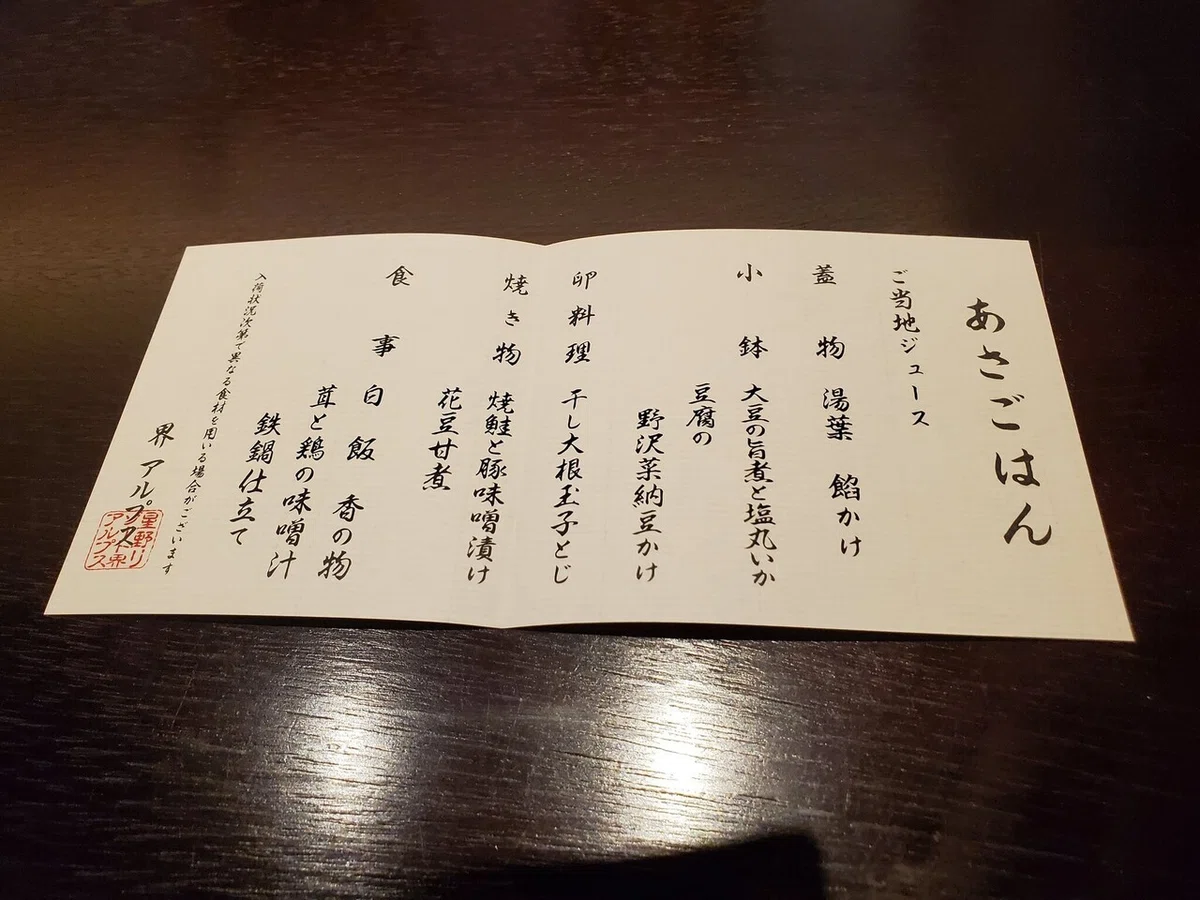 あさごはん
ご当地ジュース
蓋物 湯葉 餡かけ
小鉢 大豆の旨煮と塩丸いか
豆腐の
野沢菜納豆かけ
卵料理 干し大根玉子とじ
焼き物 焼鮭と豚味噌漬け
花豆甘煮
食事 白飯 香の物
茸と鶏の味噌汁
鉄鍋仕立て
入荷状況次第で異なる食材を用いる場合がございます
界 アルプス
星野リ
ゾート界
アルプス